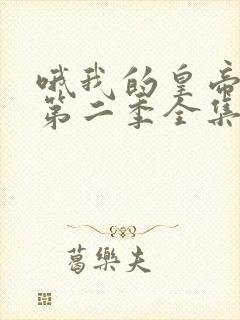 哦我的皇帝
第二季全集
葛樂夫